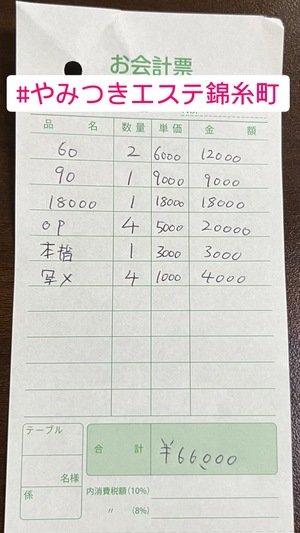 お会計票
#やみつきエステ錦糸町
品 名 数量 単価 金 額
60 2 6000 12000
90 1 9000 9000
18000 1 18000 18000
OP 4 5000 20000
本指 1 3000 3000
写メ 4 1000 4000
テーブル
合 計 ¥66,000
名様
係
内消費税額(10%)
〃 (8%)